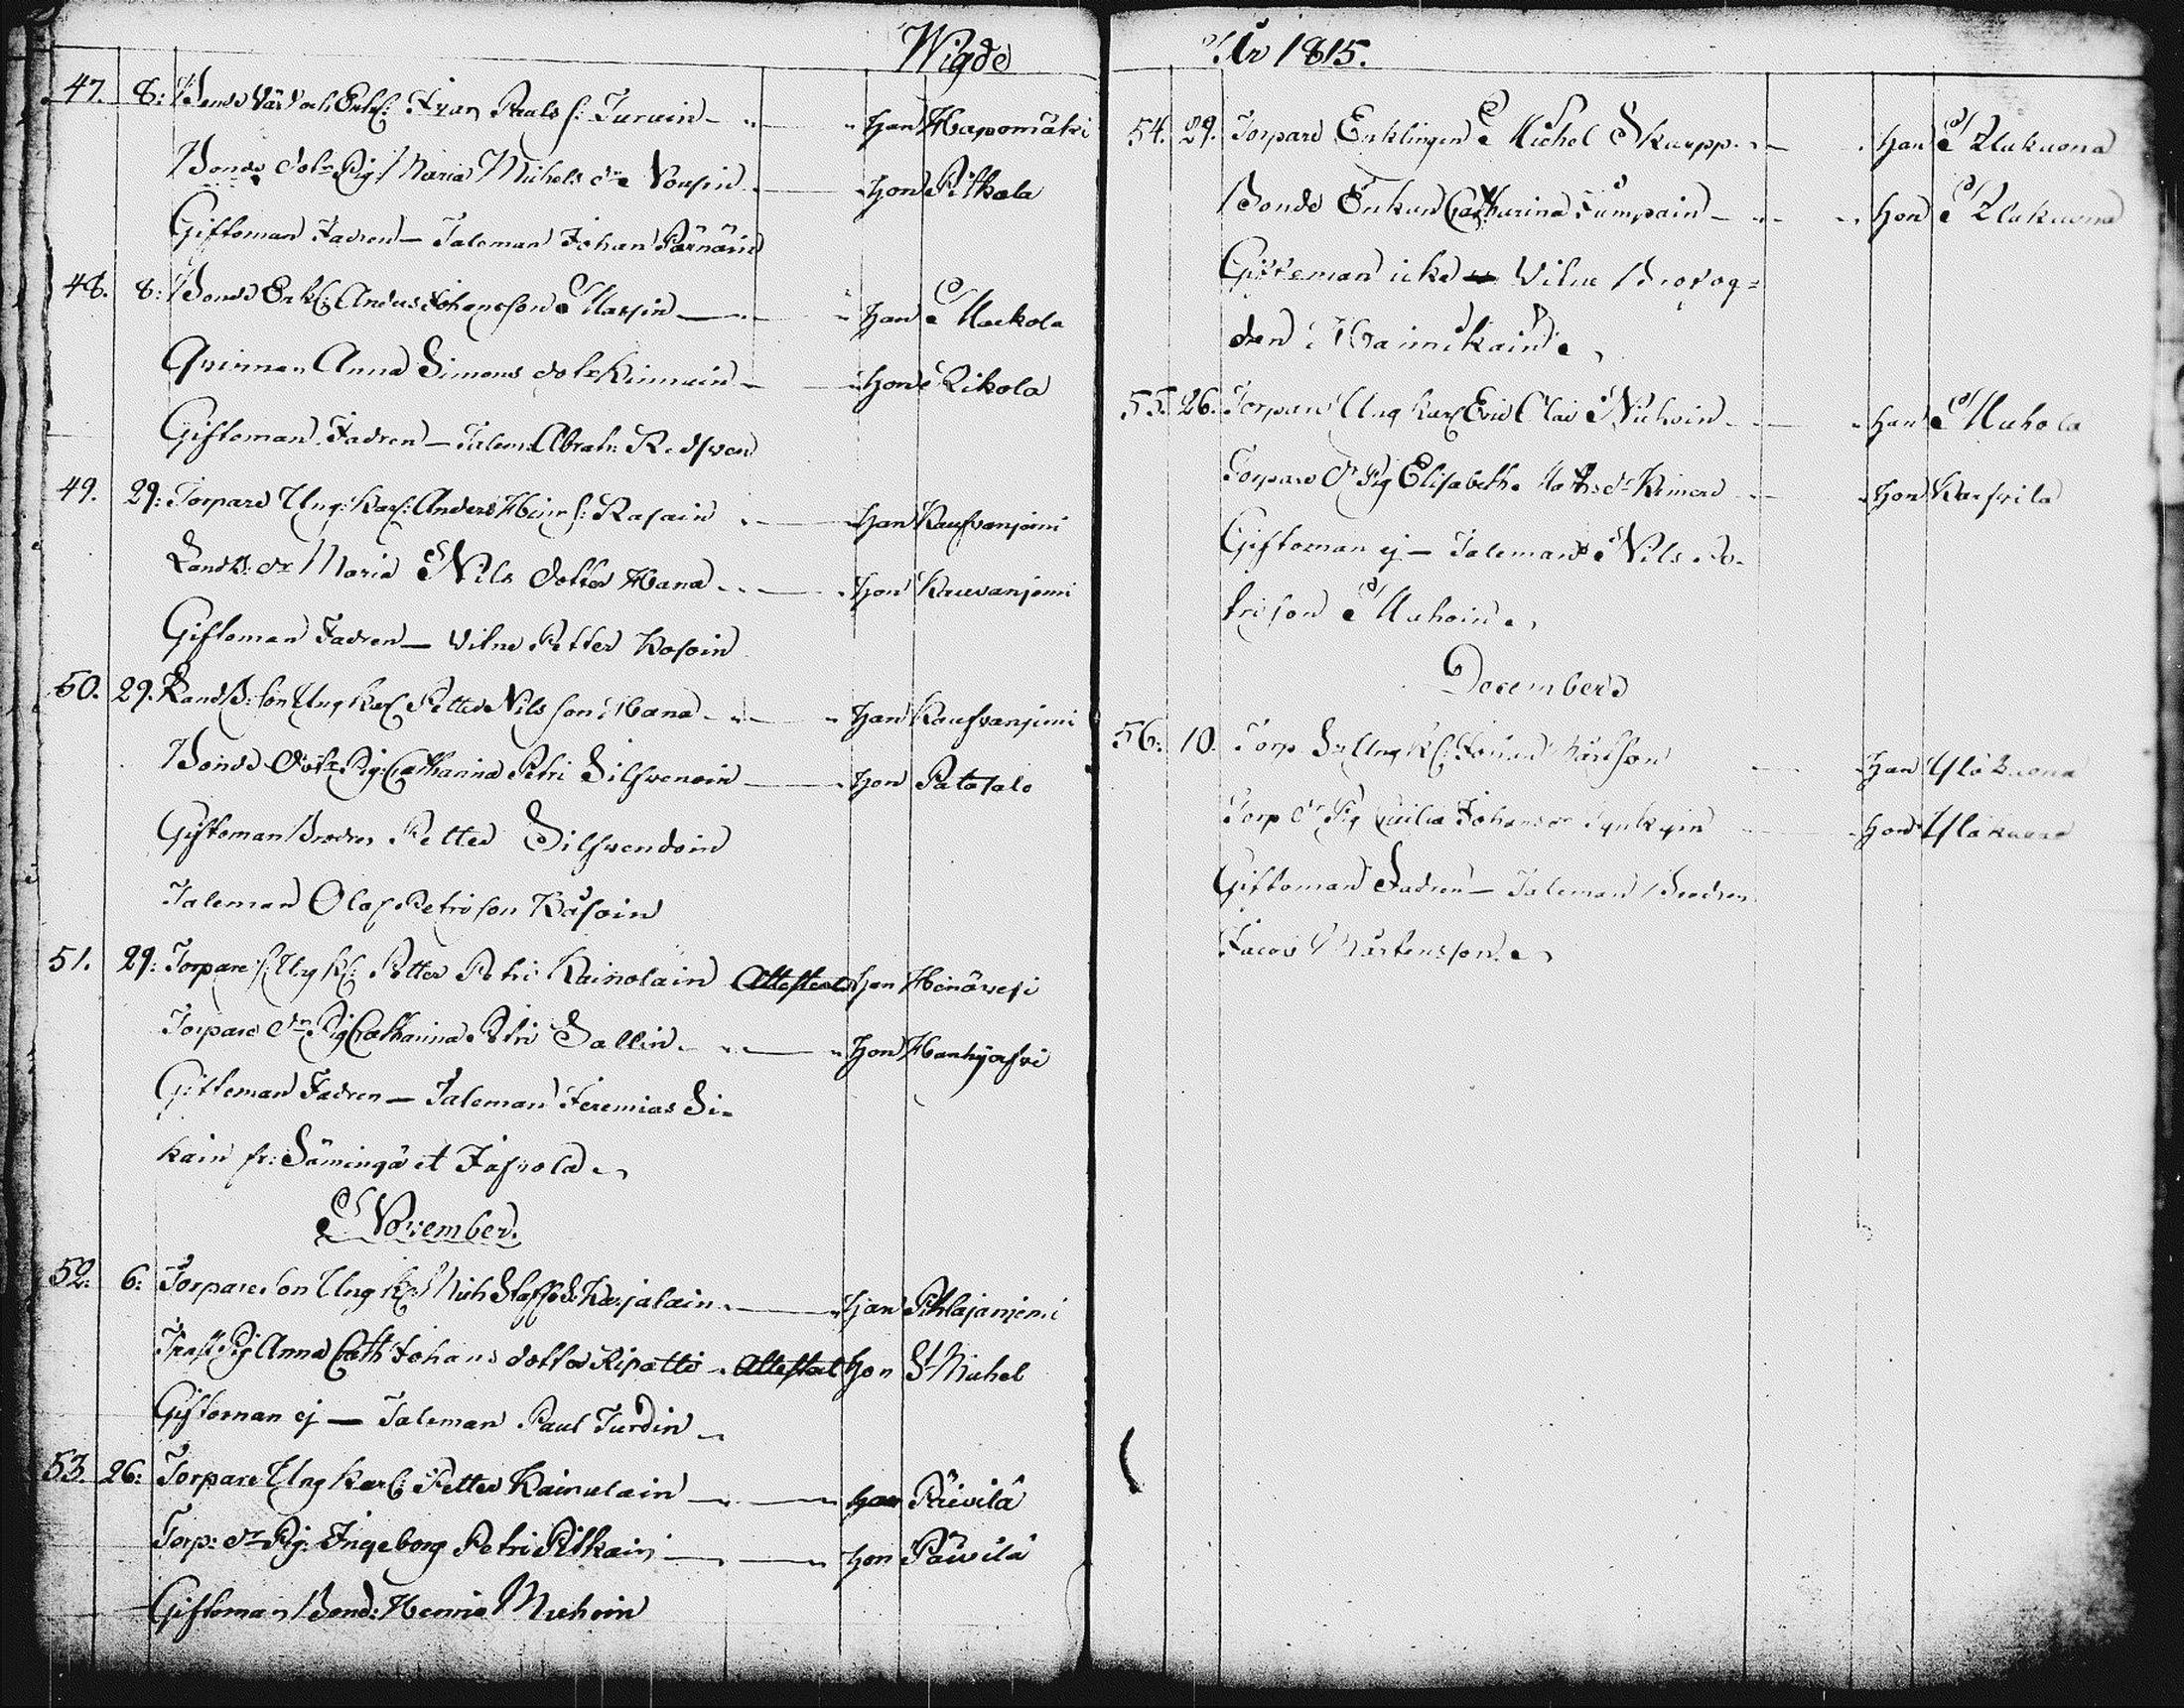 Wigde
47. 8: Bonde Enkl: Ivan Pauls s: Turuin Han Haapomäki
Bonde dotr Pig: Maria Michels dr Hon Pitkala
Giftoman Fadren — Taleman Johan Pärnäin
48. 8: Bonde Enkl: Anders Johansson Massin Han Mackola
Qvinnan Anna Simons dotr Kinnuin Hon Rikola
Giftoman Fadren — Talem: Abrah: Redsven
49. 29: Torpare Ung: Karl: Anders Hinr s: Rasain Han Kaufvanjemi
Landtb: dr Maria Nils dotter Hana Hon Kauvanjemi
Giftoman Fadren — Vitne Petter Kosoin
50. 29. Landtb: son Ung Karl Petter Nils son Hana Han Kaufvanjemi
Bonde Dotr Pig: Catharina Petri Silfvenoin Hon Patasalo
Giftoman Brodren Petter Silfvendoin
Taleman Olof Petrison Kåsoin
51. 29: Torpare s: Ung Kl: Petter Petri Kainolain Attesterad Han Heinävesi
Torpare dr Pig Catharina Petri Sallin Hon Hanhijarfvi
Giftoman Fadren — Taleman Jeremias Si=
kain fr: Sämingä et Jasvola
November.
52. 6: Torpare son Ung Kl Mich Staffs S: Karjalain Han Pihlajanjemi
Pig Anna Cath Johans dotter Ripatti Attesterad Hon St Michel
Giftoman ej — Taleman Paul Turdin
53. 26: Torpare Ung Karl: Petter Kainulain Han Päivilä
Torp: dr Pig: Ingeborg Petri Pitkain Hon Päivilä
Giftoman Bond: Henric Muhoin
År 1815.
54. 29. Torpare Enklingen Michel Skarpp Han Rlukuona
Bonde Enkan Catharina Fumpain Hon Rlukuona
Giftoman icke Vitne Brofog=
den Hainikain
55. 26. Torpare Ung Karl Eric Clas Nichoin Han Muhola
Torpare Dr Pig Elisabeth Mats dr Kimerd Hon Karfvila
Giftoman ej — Taleman Nils Pe=
trison Muhoin
December
56: 10. Torp Sn Ung Kl: Johan Mårtson Han Yläkuona
Torp dr Pig Cecilia Johans dr Tynkyin Hon Yläkuona
Giftoman Fadren — Taleman Brodren
Jacob Mårtensson